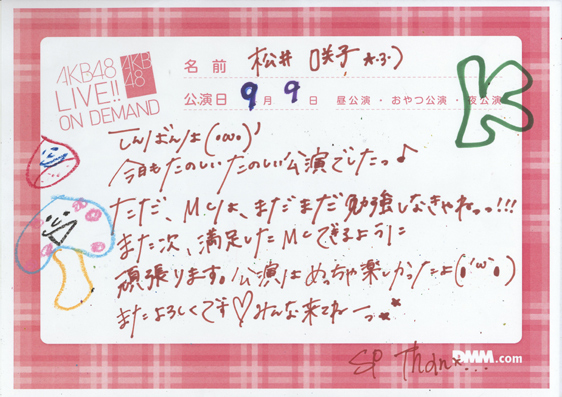 AKB48
LIVE!!
ON DEMAND
AKB
48
名前 松井 咲子
公演日 9月 9日 昼公演・おやつ公演・夜公演
K
こんばんは(・ω・)
今日もたのしいたのしい公演でしたっ♪
ただ、MCは、まだまだ勉強しなきゃねっっ!!!
また次、満足したMCできるように
頑張ります。公演はめっちゃ楽しかったよ(•'ω'•)
またよろしくです♡みんな来てねーっ
SP Thanx...
DMM.com